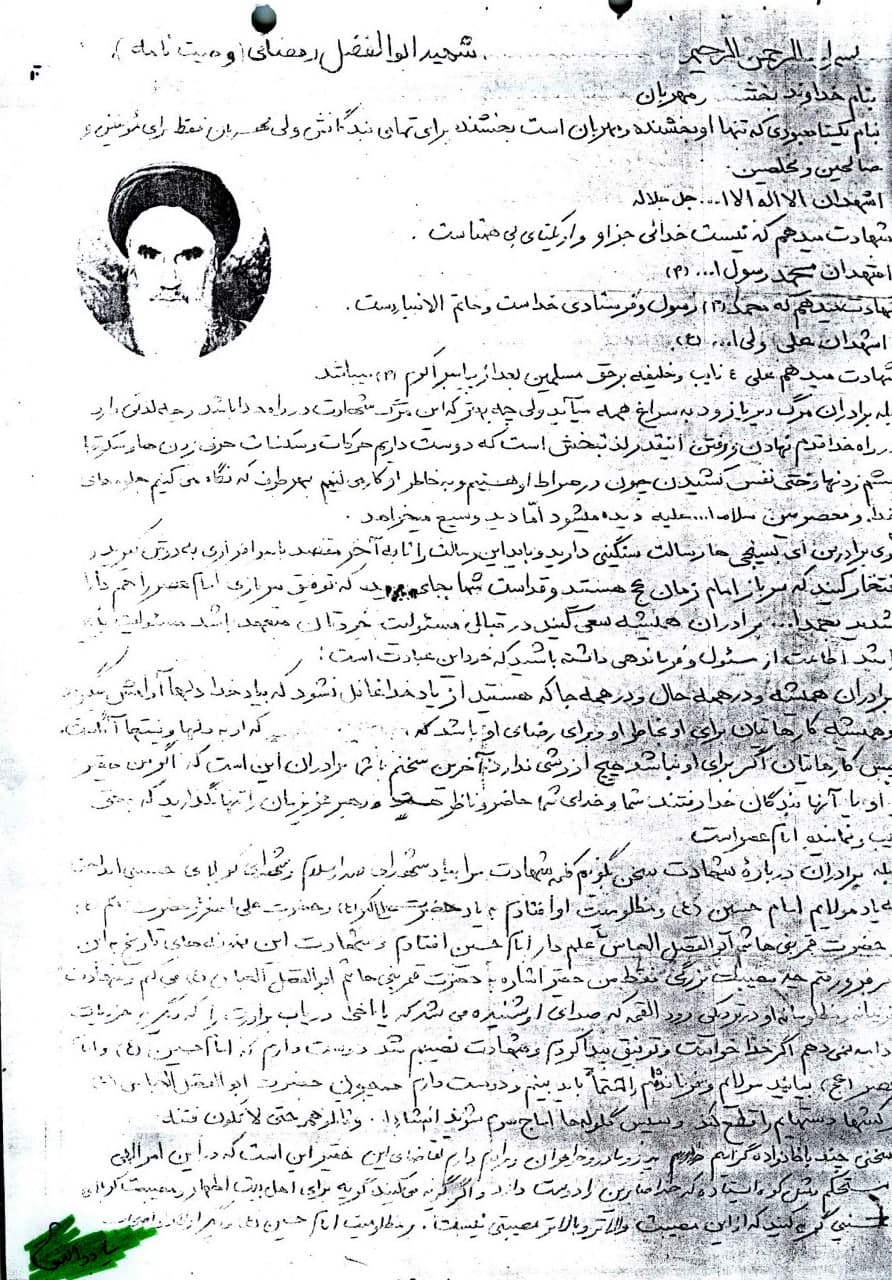 بسم الله الرحمن الرحیم شهید ابوالفضل رمضانی (وصیت نامه)
بنام خداوند بخشنده و مهربان
بنام یکتا معبودی که تنها او بخشنده و مهربان است بخشنده برای تمامی بندگانش ولی مهربان فقط برای مؤمنین و
صالحین و مخلصین.
اشهدان لا اله الا ا... جل جلاله
شهادت میدهم که نیست خدائی جز او و او یکتای بی همتاست.
اشهدان محمد رسول ا... (ص)
شهادت میدهم که محمد (ص) رسول و فرستادی خداست و خاتم الانبیاء است.
اشهدان علی ولی ا... (ع)
شهادت میدهم علی ع نایب و خلیفه برحق مسلمین بعد از پیامبر اکرم (ص) میباشد
بله برادران مرگ دیر یا زود به سراغ همه میآید ولی چه بهتر که این مرگ شهادت در راه خدا باشد و چه لذتی دارد
در راه خدا قدم نهادن و رفتن آنقدر لذتبخش است که دوست داریم حرکات و سکنات حرف زدن ها و سکوت
چشم زدنها و حتی نفس کشیدن چون در صراط او هستیم و به خاطر او کار می کنیم بهر طرف که نگاه می کنیم جلوه های
خدا و معصومین سلام ا... علیه دیده میشود اما دید وسیع میخواهد.
برادرین ای بسیجی ها رسالت سنگینی دارید و باید این رسالت را تا به آخر مقصد با سرافرازی به دوش بگیرید و
افتخار کنید که سرباز امام زمان عج هستید و شما بجای که توفیق سربازی امام عصر را هم دارا
شدید بحمدا... برادران همیشه سعی کنید در قبال مسئولیت خودتان متعهد باشید مسئولیت پذیر
باشد اطاعت از مسئول و فرماندهی داشته باشید که خود این عبادت است.
برادران همیشه و در همه حال و در همه جا که هستید از یاد خدا غافل نشوید که بیاد خدا دلها آرامش میگیرد
و همیشه کارهایتان برای او بخاطر او و برای رضای او باشد که که او به دلها و نیتها آگاه است.
پس کارهایتان اگر برای او نباشد هیچ ارزشی ندارد. آخرین سخنم با شما برادران این است که اگر من حقیر
و او یا آنها بندگان خدا رفتند شما و خدای شما حاضر و ناظر هست و رهبر عزیزمان را تنها نگذارید که بحق
نایب و نماینده امام عصر است.
بله برادران درباره شهادت سخن بگویم کلمه شهادت مرا بیاد شهدای صدر اسلام و شهدای کربلای حسینی انداخت
به یاد مولایم امام حسین (ع) و مظلومیت او افتادم به یاد حضرت علی اکبر (ع) و حضرت علی اصغر و حضرت قاسم (ع)
و حضرت قمر بنی هاشم ابوالفضل العباس علم دار امام حسین افتادم و شهادت این نمونه های تاریخ به این
فرو رفتم چه مصیبت بزرگی فقط من حقیر اشاره به حضرت قمر بنی هاشم ابوالفضل العباس (ع) می کنم و شهادت
او در نزدیکی رود القمه که صدای او شنیده می شد که یا اخا دریاب برادرت را که دیگر به جزئیات
ادامه نمی دهم اگر خدا خواست و توفیق پیدا کردم و شهادت نصیبم شد دوست دارم که امام حسین (ع) و امام
عصر (عج) بیایند مولایم و فرمانده ام را حتماً باید ببینم و دوست دارم همچون حضرت ابوالفضل العباس (ع)
دستهایم را قطع کند و سپس گلوله ها آماج سرم شوند انشاء ا. و قاتلوهم حتی لا تکون فتنه
سخنی چند با خانواده گرامیم دارم پدر و مادر و خواهران و برادرانم تقاضای این حقیر این است که در این امر الهی
مستحکم مثل کوه ایستاده که خدا صابرین را دوست دارد و اگر گریه می کنید گریه برای اهل بیت اطهار و مصیبت کربلای
حسینی گریه کنید که از این مصیبت والاتر و بالاتر مصیبتی نیست. بر مظلومیت امام حسین (ع)